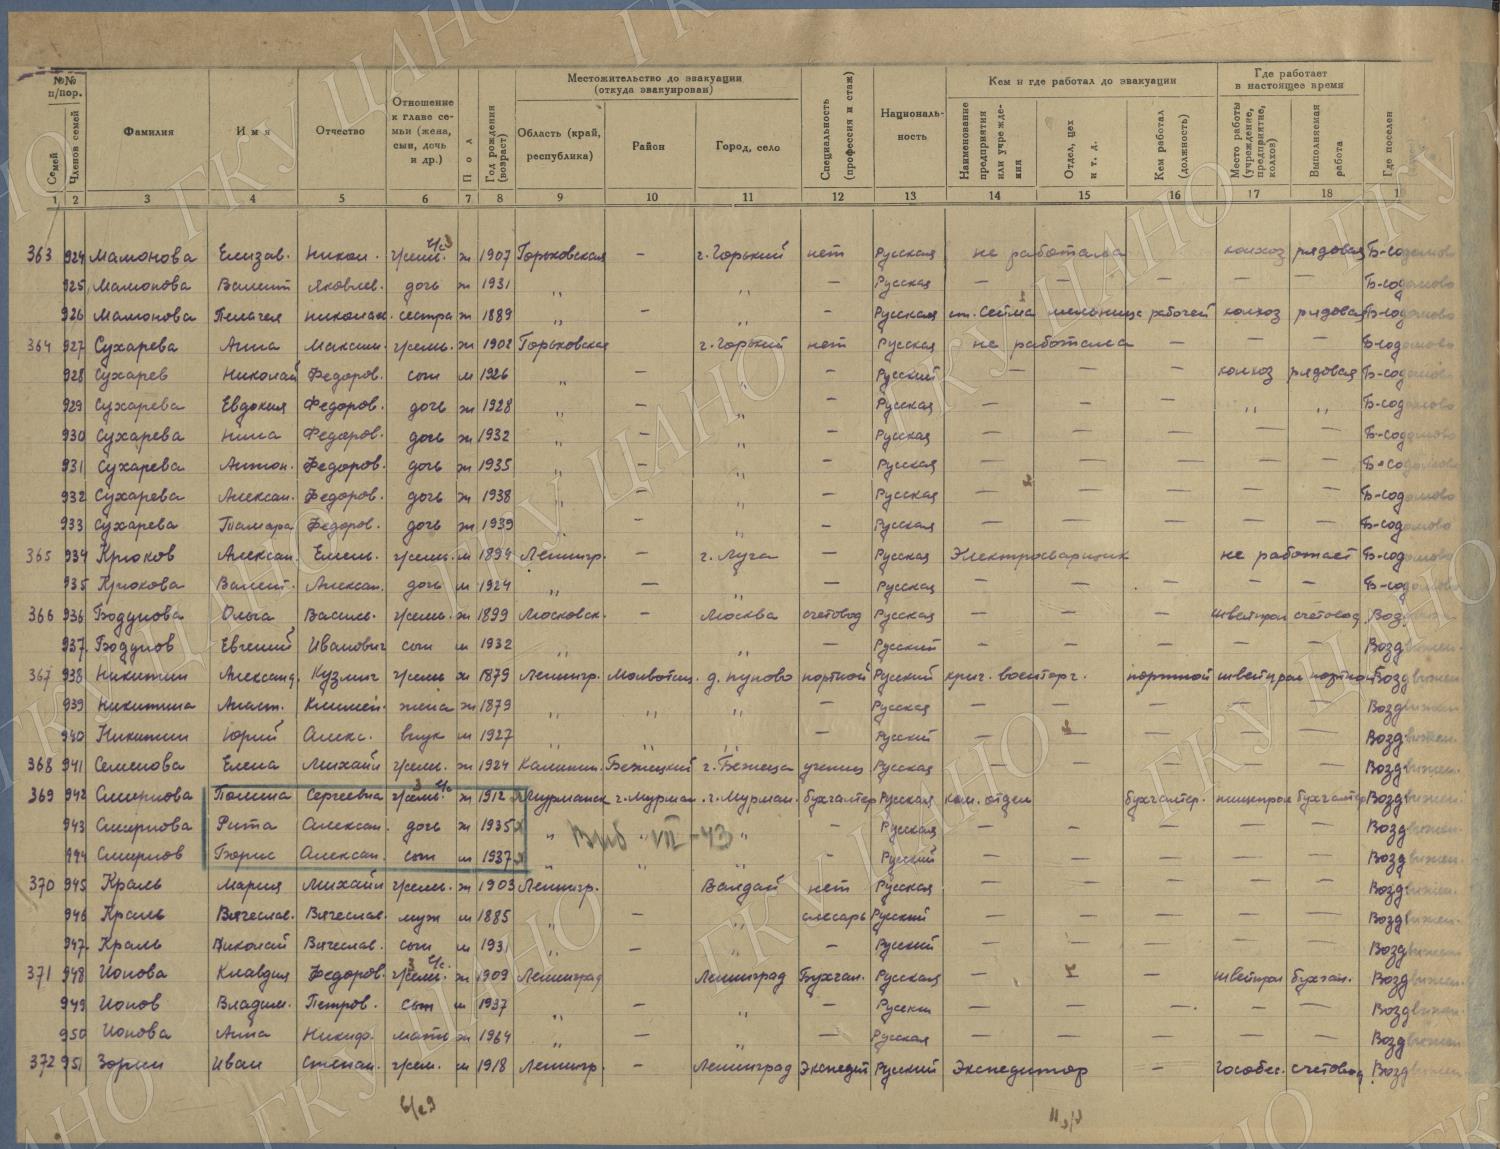 №№ п/пор.
Местожительство до эвакуации (откуда эвакуирован)
Кем и где работал до эвакуации
Где работает в настоящее время
Семей | Членов семей | Фамилия | Имя | Отчество | Отношение к главе семьи (жена, сын, дочь и др.) | Пол | Год рождения (возраст) | Область (край, республика) | Район | Город, село | Специальность (профессия и стаж) | Националь-ность | Наименование предприятия или учрежде-ния | Отдел, цех и т. д. | Кем работал (должность) | Место работы (учреждение, предприятие, колхоз) | Выполняемая работа | Где поселен
1 2 3 4 5 6 7 8 9 10 11 12 13 14 15 16 17 18 1
363 924 Мамонова Елизав. Никол. г/семь. ж 1907 Горьковская — г. Горький нет Русская не работала колхоз рядовая Б-содомово
925 Мамонова Валент Яковлев. дочь ж 1931 „ „ — Русская — — — — — Б-содомово
926 Мамонова Пелагея Николаев. сестра ж 1889 „ — „ — Русская ст. Сейма мельница рабочей колхоз рядовая Б-содомово
364 927 Сухарева Анна Максим. г/семь. ж 1902 Горьковская г. Горький нет Русская не работала — — — Б-содомово
928 Сухарев Николай Федоров. сын м 1926 „ — „ — Русский — — — колхоз рядовая Б-содомово
929 Сухарева Евдокия Федоров. дочь ж 1928 „ — „ — Русская — — — „ „ Б-содомово
930 Сухарева Нина Федоров. дочь ж 1932 „ — „ — Русская — — — — — Б-содомово
931 Сухарева Антон. Федоров. дочь ж 1935 „ — „ — Русская — — — — — Б-содомово
932 Сухарева Алексан. Федоров. дочь ж 1938 „ — „ — Русская — — — — — Б-содомово
933 Сухарева Тамара Федоров. дочь ж 1939 — „ — Русская — — — — — Б-содомово
365 934 Крюков Алексан. Емель. г/семь. м 1894 Ленингр. — г. Луга — Русская Электросварщик не работает Б-содомово
935 Крюкова Валент. Алексан. дочь м 1924 „ — „ — Русская — — — — — Б-содомово
366 936 Бодунова Ольга Василь. г/семь. ж 1899 Московск. — Москва счетовод Русская — — — швейпром счетовод Воздвижен.
937. Бодунов Евгений Иванович сын м 1932 „ „ — Русский — — — — — Воздвижен.
367 938 Никитин Александ. Кузмич г/семь м 1879 Ленингр. Молвотиц. д. пупово портной Русский криг. военторг. портной швейпром портной Воздвижен
939 Никитина Анаст. Климен. жена ж 1879 „ „ „ — Русская — — — — — Воздвижен.
940 Никитин Юрий Алекс. внук м 1927 „ „ „ — Русский — — — — Воздвижен.
368 941 Семенова Елена Михайл г/семь. ж 1924 Калинин. Бежецкий г. Бежеца учениц Русская — — — — — Воздвижен.
369 942 Смирнова Полина Сергеевна г/семь. ж 1912 Мурманск г. Мурман. г. Мурман. бухгалтер Русская ком. отдел бухгалтер. пищепром бухгалтер Воздвижен.
943 Смирнова Рита Алексан. дочь ж 1935 „ „ „ — Русская — — — — — Воздвижен.
VIII-43
944 Смирнов Борис Алексан. сын м 1937 „ „ „ — Русский — — — — — Воздвижен.
370 945 Краль Мария Михайл г/семь. ж 1903 Ленингр. Валдай нет Русская — — — — — Воздвижен.
946 Краль Вячеслав. Вячеслав. муж м 1885 „ — „ слесарь Русский — — — — — Воздвижен.
947. Краль Николай Вячеслав. сын м 1931 „ — „ — Русский — — — — — Воздвижен
371 948 Ионова Клавдия Федоров. г/семь. ж 1909 Ленинград Ленинград Бухгал. Русская — — — швейпром бухгал. Воздвижен.
949 Ионов Владим. Петров. сын м 1937 „ — „ — Русский — — — — — Воздвижен.
950 Ионова Анна Никиф. мать ж 1964 „ — „ — Русская — — — — — Воздвижен.
372 951 Зорин Иван Степан. г/сем. м 1918 Ленингр. — Ленинград Экспедит Русский Экспедитор — Гособес. счетовод Воздвижен.
ГКУ ЦАНО